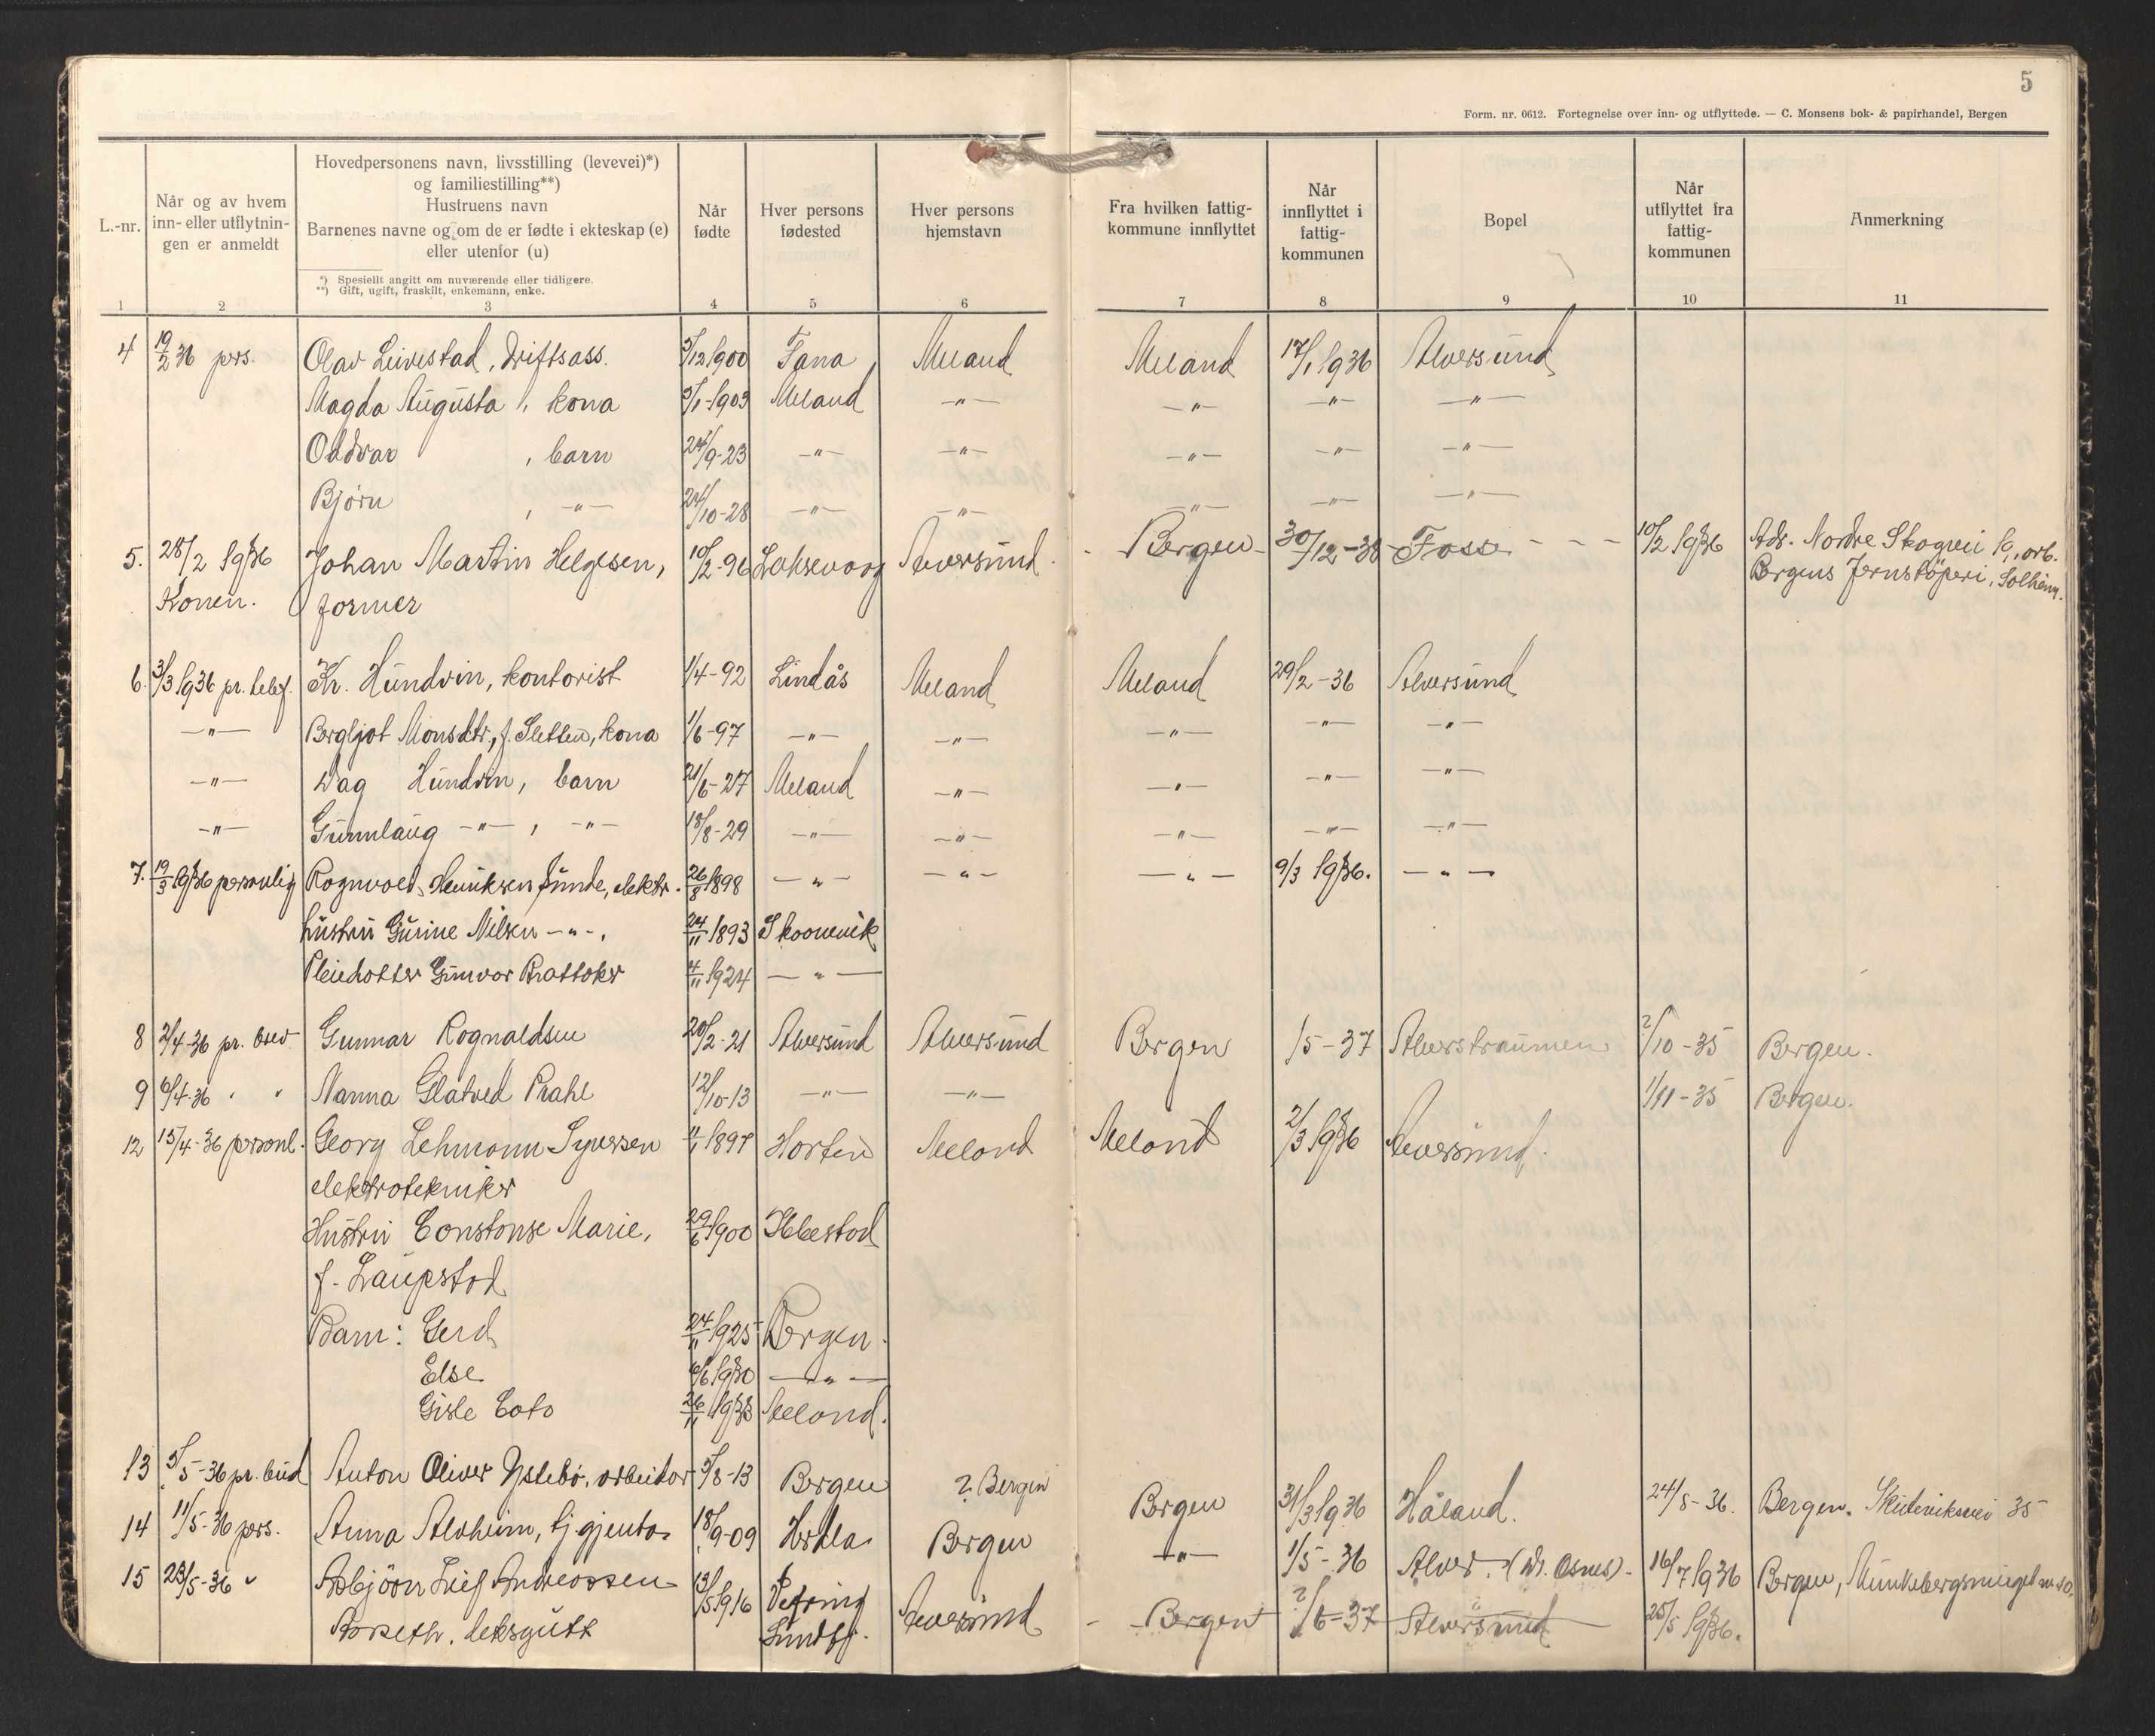 5
Form. nr. 0612. Fortegnelse over inn- og utflyttede. — C. Monsens bok- & papirhandel, Bergen
L.-nr.
Når og av hvem
inn- eller utflytnin-
gen er anmeldt
Hovedpersonens navn, livsstilling (levevei)*)
og familiestilling**)
Hustruens navn
Barnenes navne og om de er fødte i ekteskap (e)
eller utenfor (u)
*) Spesiellt angitt om nuværende eller tidligere.
**) Gift, ugift, fraskilt, enkemann, enke.
Når
fødte
Hver persons
fødested
Hver persons
hjemstavn
Fra hvilken fattig-
kommune innflyttet
Når
innflyttet i
fattig-
kommunen
Bopel
Når
utflyttet fra
fattig-
kommunen
Anmerkning
1 2 3 4 5 6 7 8 9 10 11
4 19/2 36 pers. Olav Leivestad, driftsass. 3/12 1900 Fana Meland Meland 17/1 1936 Alversund
Magda Augusta, kona 3/1-1903 Meland -"- -"- -"- -"-
Oddvar, barn 24/9-23 -"- -"- -"- -"- -"-
Bjørn, -"- 24/10-28 -"- -"- -"- -"- -"-
5. 28/2 1936 Johan Martin Helgesen, 10/2-96 Laksevaag Alversund - Bergen - 30/12-38 - Fosse - - - 10/2 1936 Adr. Nordre Skogvei 19, arb.
Konen. former Bergens Jernstöperi, Solheim.
6. 3/3 1936 pr. telef. Kr. Hundvin, kontorist 1/4-92 Lindås Meland Meland 29/2-36 Alversund
-"- Bergljot Monsdtr., f. Sletten, kona 1/6-97 -"- -"- -"- -"- -"-
-"- Dag Hundvin, barn 21/6-27 Meland -"- -"- -"- -"-
-"- Gunnlaug -"-, -"- 18/8-29 -"- -"- -"- -"- -"-
7. 19/3 1936 personlig Rognvald Henriksen Sunde, elektr. 26/8 1898 -"- -"- -"- 9/3 1936. -"-
hustru Gurine Nilsen -"-, 24/11 1893 Skoonevik
Pleiedotter Gunvor Brattaker 4/11 1924 -"-
8 2/4-36 pr. brev Gunnar Rognaldsen 20/2-21 Alversund Alversund Bergen /5-37 Alverstraumen ?/10-35 Bergen.
9 6/4-36 " " Nanna Glatved Prahl 12/10-13 -"- -"- 1/11-35 Bergen.
12 15/4-36 personl. Georg Lehmann Syversen 4/1 1897 Horten Meland Meland 2/3 1936 Alversund.
elektrotekniker
Hustru Constanse Marie, 29/6 1900 Ibestad
f. Laupstad
Barn: Gerd 24/11 1925 Bergen.
Else 6/6 1930 -"-
Gisle Coto 26/11 1933 Meland.
13 5/5-36 pr. bud Anton Oliver Ystebø, arbeidar 3/8-13 Bergen ? Bergen Bergen 31/3 1936 Håland. 24/8-36. Bergen. Skuteviksvei 35
14 11/5-36 pers. Anna Alvheim, tj.gjenta 18/9-09 Herdla Bergen -"- 1/5-36 Alver. (Dr. Osnes) - 16/7 1936 Bergen, Munkebergsmuget
15 23/5-36 " Asbjörn Leif Andreassen 13/5 1916 Vefring Alversund - Bergen ?/6-37 Alversund 25/5 1936.
Borseth. leksgutt Sundfj.